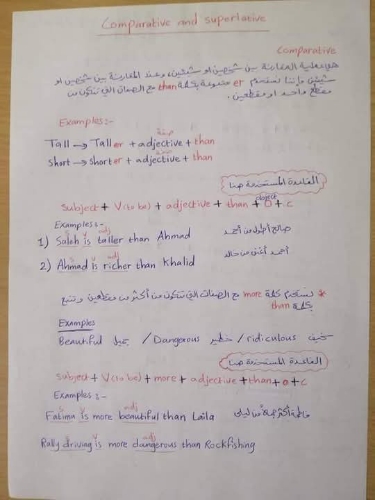 Comparative and superlative
Comparative
هي عملية المقارنة بين شخصين او شيئين، وعند المقارنة بين شخصين او
شيئين فإننا نستخدم er متبوعة بكلمة than مع الصفات التي تتكون من
مقطع واحد او مقطعين.
Examples:-
صفة
Tall → Taller + adjective + than
short → shorter + adjective + than
القاعدة المستخدمة هنا
object
Subject + V(to be) + adjective + than + O + C
Examples:-
v adj
1) Saleh is taller than Ahmad صالح أطول من أحمد
v adj
2) Ahmad is richer than Khalid أحمد أغنى من خالد
* نستخدم كلمة more مع الصفات التي تتكون من أكثر من مقطعين وتتبع
بكلمة than
Examples
Beautiful جميل / Dangerous خطير / ridiculous سخيف
القاعدة المستخدمة هنا
Subject + V(to be) + more + adjective + than + o + c
Examples:-
v adj
Fatima is more beautiful than Laila فاطمة أكثر جمالا من ليلى
v adj
Rally driving is more dangerous than Rockfishing